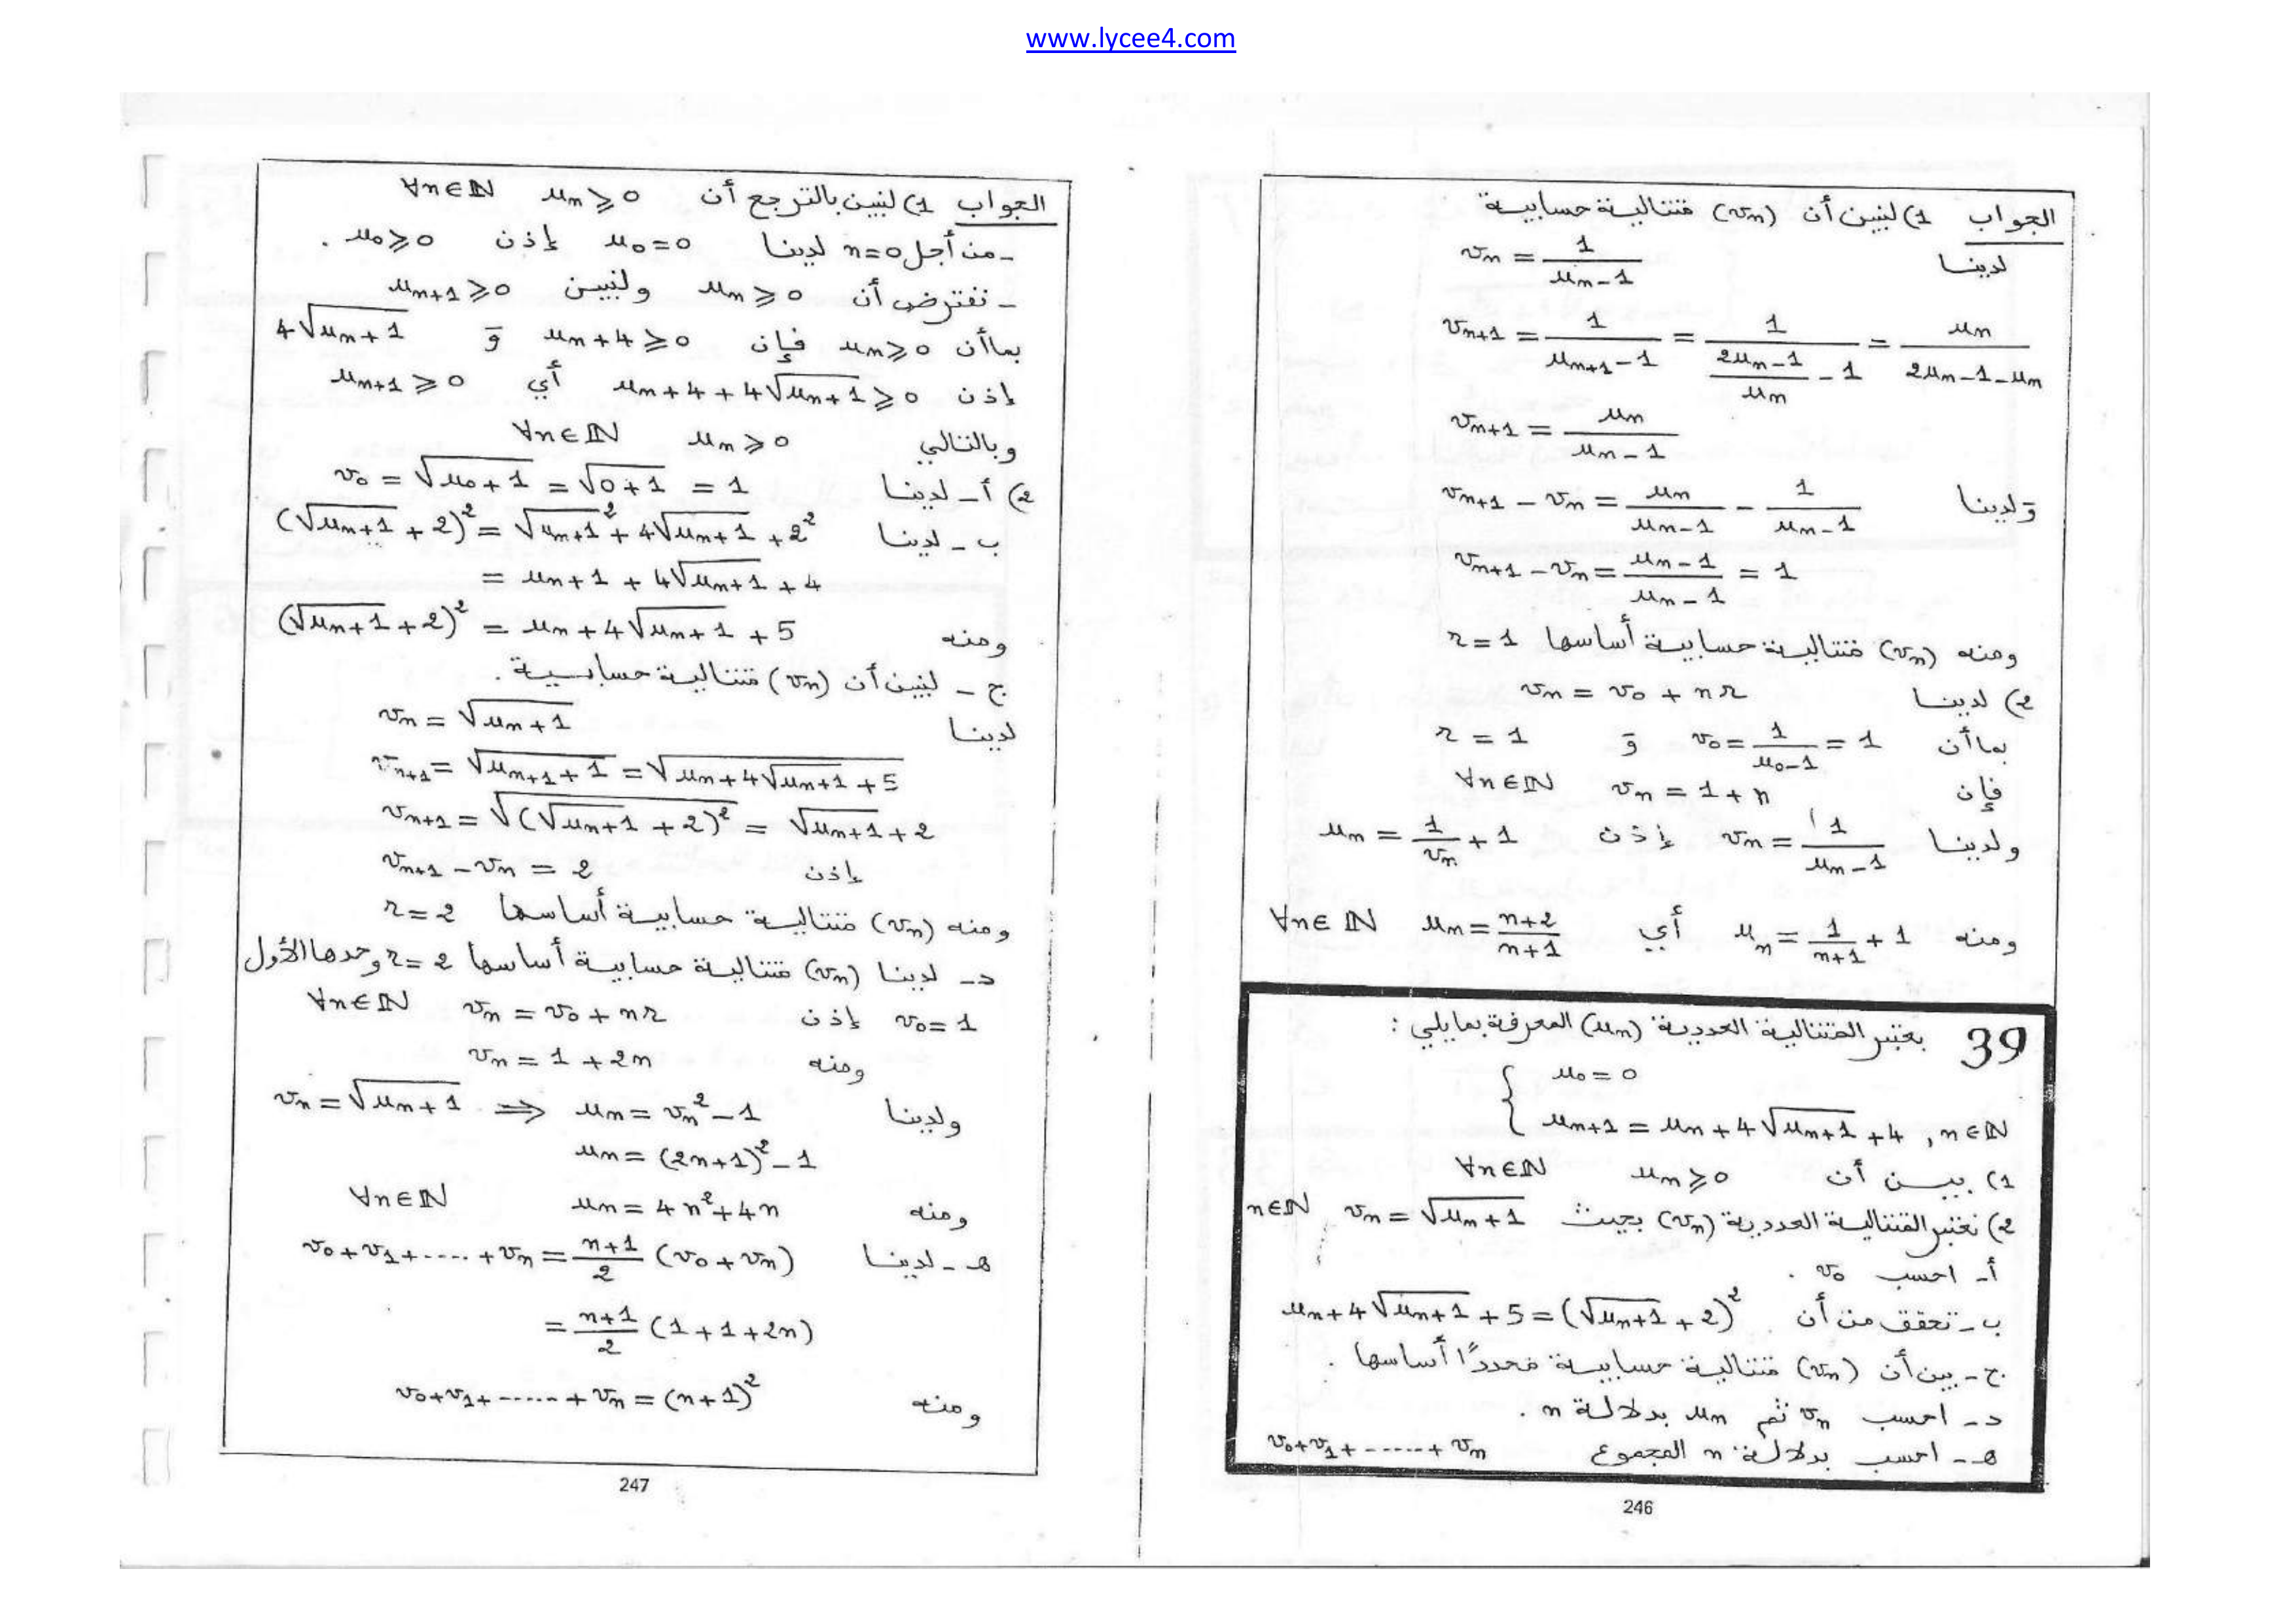 www.lycee4.com
الجواب 1) لنبين أن (vn) متتالية حسابية
لدينا vn = 1/(un-1)
vn+1 = 1/(un+1 - 1) = 1/((2un-1)/un - 1) = un/(2un-1-un)
vn+1 = un/(un-1)
و لدينا vn+1 - vn = un/(un-1) - 1/(un-1)
vn+1 - vn = (un-1)/(un-1) = 1
ومنه (vn) متتالية حسابية أساسها r = 1
2) لدينا vn = v0 + nr
بما أن v0 = 1/(u0-1) = 1 و r = 1
فإن vn = 1 + n ∀n∈ℕ
ولدينا vn = 1/(un-1) إذن un = 1/vn + 1
ومنه un = 1/(n+1) + 1 أي un = (n+2)/(n+1) ∀n∈ℕ
39 نعتبر المتتالية العددية (un) المعرفة بمايلي :
u0 = 0
un+1 = un + 4√(un+1) + 4 , n∈ℕ
1) بيـــن أن un ⩾ 0 ∀n∈ℕ
2) نعتبر المتتالية العددية (vn) بحيث vn = √(un+1) n∈ℕ
أ- احسب v0 .
ب - تحقق من أن un + 4√(un+1) + 5 = (√(un+1) + 2)²
ج - بين أن (vn) متتالية حسابية محددًا أساسها .
د - احسب vn ثم un بدلالة n .
هـ - احسب بدلالة n المجموع v0+v1+------+vn
246
الجواب 1) لنبين بالترجع أن un ⩾ 0 ∀n∈ℕ
- من أجل n=0 لدينا u0=0 إذن u0⩾0 .
- نفترض أن un ⩾ 0 ولنبين un+1 ⩾ 0
بما أن un⩾0 فإن un+4 ⩾ 0 و 4√(un+1)
إذن un+4+4√(un+1) ⩾ 0 أي un+1 ⩾ 0
وبالتالي un ⩾ 0 ∀n∈ℕ
2) أ- لدينا v0 = √(u0+1) = √(0+1) = 1
ب - لدينا (√(un+1) + 2)² = √(un+1)² + 4√(un+1) + 2²
= un+1 + 4√(un+1) + 4
ومنه (√(un+1) + 2)² = un + 4√(un+1) + 5
ج - لنبين أن (vn) متتالية حسابية .
لدينا vn = √(un+1)
vn+1 = √(un+1 + 1) = √(un + 4√(un+1) + 5)
vn+1 = √((√(un+1) + 2)²) = √(un+1) + 2
إذن vn+1 - vn = 2
ومنه (vn) متتالية حسابية أساسها r = 2
د- لدينا (vn) متتالية حسابية أساسها r=2 وحدها الأول
v0=1 إذن vn = v0 + nr ∀n∈ℕ
ومنه vn = 1 + 2n
ولدينا vn = √(un+1) ⟹ un = vn² - 1
un = (2n+1)² - 1
ومنه un = 4n² + 4n ∀n∈ℕ
هـ - لدينا v0+v1+----+vn = (n+1)/2 (v0+vn)
= (n+1)/2 (1+1+2n)
ومنه v0+v1+-----+vn = (n+1)²
247